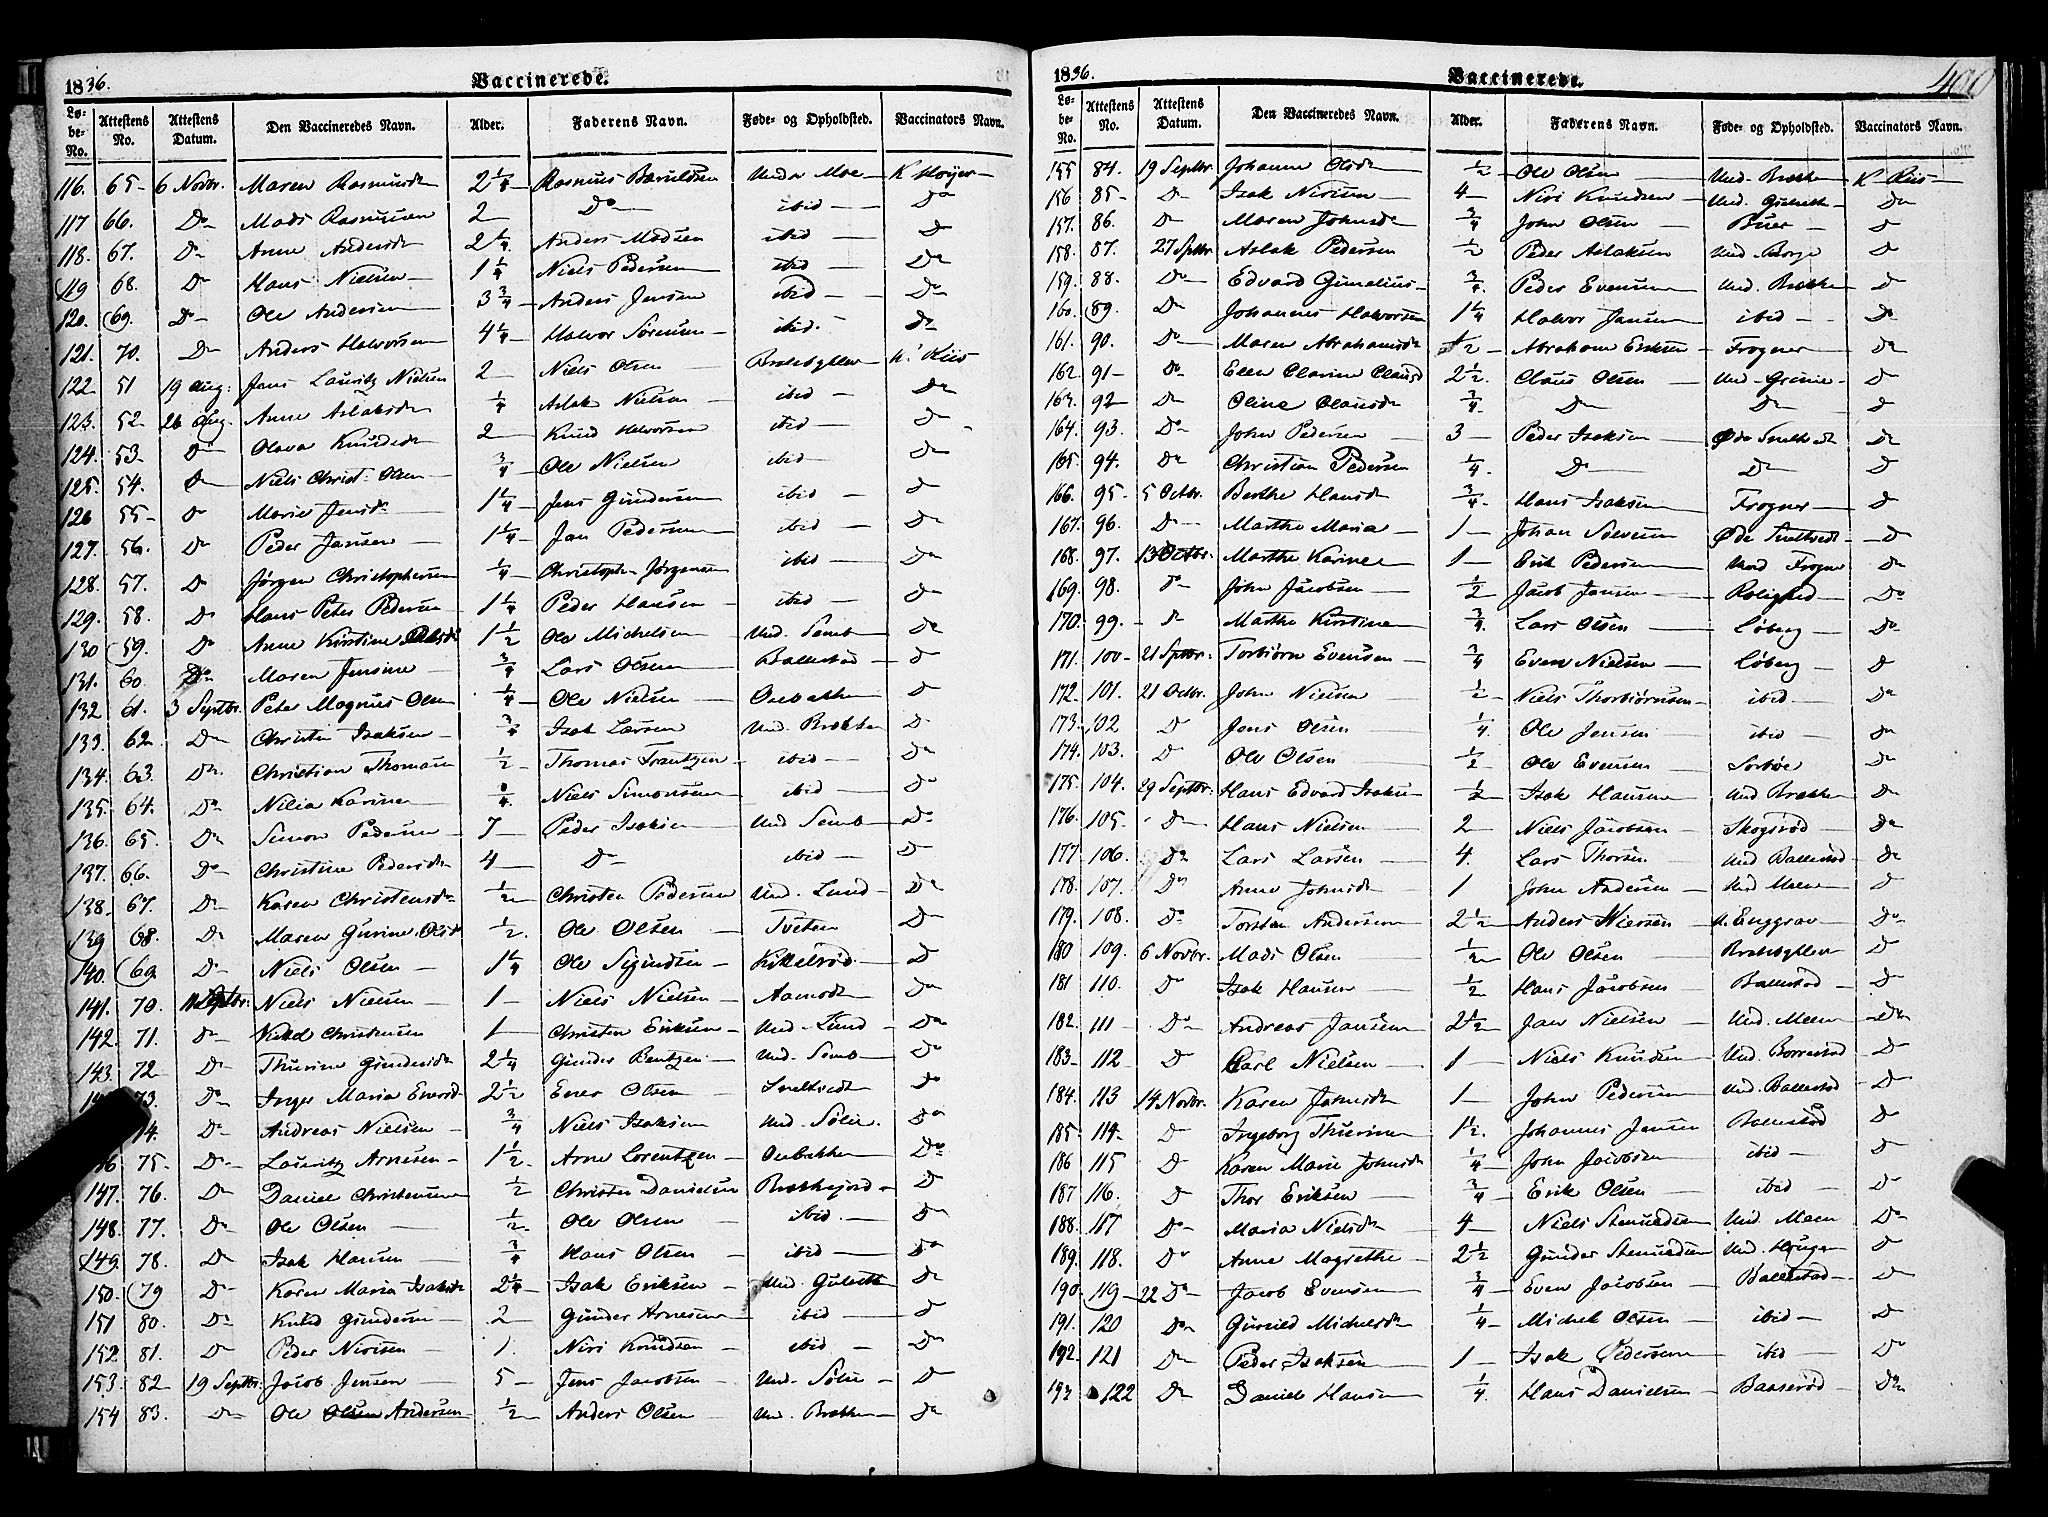 1836. Vaccinerede.
Lø-be-No. Attestens No. Attestens Datum. Den Vaccineredes Navn. Alder. Faderens Navn. Føde- og Opholdsted. Vaccinators Navn.
116. 65 6 Novbr. Maren Rasmusdr 2 1/4 Rasmus Under Moe K Høyer
117 66. Do Mads Rasmusen 2 Do ibid Do
118. 67. Do Anne Andersdr 2 1/4 Anders Madsen ibid Do
119 68. Do Hans Nielsen 1 1/4 Niels Pedersen ibid Do
120. 69. Do Ole Andersen 3 3/4 Anders Jensen ibid Do
121. 70. Do Anders Halvorsen 4 1/4 Halvor Sørensen ibid. Do
122. 51 19 Aug: Jens Lauritz Nielsen 2 Niels Olsen K. Riis
123. 52 26 Aug. Anne Aslaksdr 1/4 Aslak Nielsen ibid Do
124. 53 Do Olava Knudsdr 2 Knud Halvorsen ibid Do
125. 54. Do Niels Christ: Olsen 3/4 Ole Nielsen ibid Do
126 55 Do Marie Jensdr 1 1/4 Jens Gundersen ibid Do
127. 56. Do Peder Jansen 1 1/4 Jan Pedersen ibid Do
128. 57. Do Jørgen Christophersen 1/4 Christoph. Jørgensen ibid Do
129. 58. Do Hans Peter Pedersen 1 1/4 Peder Hansen ibid Do
130 59. Do Anne Kirstine Olsdr 1 1/2 Ole Michelsen Und. Semb Do
131. 60 Do Maren Jensine 3/4 Lars Olsen Ballestad Do
132 61. 3 Septbr. Peter Magnus Olsen 1/4 Ole Nielsen Ovebakken Do
133. 62 Do Christen Isaksen 3/4 Isak Larsen Und. Brække Do
134. 63. Do Christian Thomasen 1/2 Thomas Frantzen ibid Do
135. 64. Do Nilia Karine Niels Simonsen ibid Do
136. 65. Do Simon Pedersen 7 Peder Isaksen Und Semb Do
137. 66. Do Christine Pedersdr 4 Do ibid Do
138. 67. Do Karen Christensdr 1/2 Christen Pedersen Und. Lund Do
139 68. Do Maren Gurine Olsd 1/2. Ole Olsen Tveten Do
140. 69 Do Niels Olsen 1 1/4 Ole Sigurdsen Kittelrød Do
141. 70. Septbr. Niels Nielsen 1 Niels Nielsen Aamodt Do
142. 71. Do Christensen 1 Christen Eriksen Und. Lund Do
143. 72 Do Thurine Gundersdr 2 1/4 Gunder Bentzen Und. Semb Do
73. Do Inger Maria Eversd 2 1/2 Ever Olsen Sneltvedt Do
74. Do Andreas Nielsen 3/4 Niels Isaksen Und. Sølie. Do
146 75. Do Lauritz Arnesen 1 1/2. Arne Lorentzen Ovebakken Do
147. 76. Do Daniel Christensen 1/2 Christen Danielsen Brækkejord Do
148. 77. Do Ole Olsen 1/2 Ole Olsen ibid. Do
149. 78. Do Isak Hansen 3/4 Hans Olsen ibid Do
150. 79 Do Karen Maria Isaksdr 2 1/4 Isak Eriksen Und. Gulseth Do
151 80. Do Knud Gundersen 2 Gunder Arnesen ibid Do
152 81. Do Peder Nirisen 1. Niri Knudsen ibid Do
153. 82 19 Septbr. Jacob Jensen 5 Jens Jacobsen Und. Sølie Do
154 83. Do Ole Olsen Andersen 1/2 Anders Olsen Und. Brække Do
1836. Vaccinerede. 400
Lø-be-No. Attestens No. Attestens Datum. Den Vaccineredes Navn. Alder. Faderens Navn. Føde- og Opholdsted. Vaccinators Navn.
155 84. 19 Septbr. Johanne Olsdr 1/2 Ole Olsen Und. Brække K Riis
156 85 Do Isak Nirisen 4 Niri Knudsen Und. Gulseth Do
157. 86. Do Maren Johnsdr 3/4 John Olsen Buer Do
158. 87. 27 Septbr Aslak Pedersen 1/2 Peder Aslaksen Und. Borge Do
159. 88. Do Edvard Gunelius 3/4. Peder Evensen Und. Brække Do
160. 89. Do Johannes Halvorsen 1 1/4 Halvor Jansen ibid Do
161. 90. Do Maren Abrahamsdr 1/2 Abraham Eriksen Frogner Do
162. 91 Do Ellen Clarine Clausd 2 1/2. Claus Olsen Und. Do
163. 92 Do Oline Clausdr 3/4. Do Do Do
164. 93. Do John Pedersen 3 Peder Isaksen Øde Sneltvedt Do
165. 94. Do Christian Pedersen 1/4. Do Do Do
166. 95. 5 Octbr. Berthe Hansdr 3/4. Hans Isaksen Frogner Do
167. 96. Do Marthe Maria 1 Johan Øde Sneltvedt Do
168. 97. 13 Octbr. Marthe Karine 1 Erik Pedersen Und Frogner Do
169. 98. Do John Jacobsen 1/2 Jacob Jansen Rolighed Do
170. 99. Do Marthe Kirstine 3/4. Lars Olsen Løberg Do
171. 100 21 Septbr. Torbiørn Evensen 3/4 Even Nielsen Løberg Do
172. 101. 21 Octbr. John Nielsen 1/2 Niels Thorbiørnsen ibid. Do
173. 102 Do Jens Olsen 1/4. Ole Jensen ibid Do
174. 103. Do Ole Olsen 1/2 Ole Evensen Sorbøe Do
175. 104. 29 Septbr. Hans Edvard Isaksen 1/2 Isak Hansen Und Brække Do
176. 105. Do Hans Nielsen 2 Niels Jacobsen Skogsrød Do
177. 106. Do Lars Larsen 4. Lars Thorsen Und Ballestad Do
178. 107. Do Anne Johnsdr 1 John Andersen Und Meen Do
179. 108. Do Torsten Andersen 2 1/2 Anders u. Enggrav Do
180 109. 6 Novbr. Mads Olsen 1/2 Ole Olsen Do
181 110. Do Isak Hansen 1/2 Hans Jacobsen Ballestad Do
182. 111 Do Andreas Jansen 2 1/2 Jan Nielsen Und. Meen Do
183. 112 Do Carl Nielsen 1 Niels Knudsen Und. Borrestad Do
184. 113 14 Novbr. Karen Johnsdr 1 John Pedersen Und. Ballestad Do
185. 114. Do Ingeborg Thurine 1 1/2. Johannes Jensen Ballestad Do
186 115 Do Karen Marie Johnsdr 1/4 John Jacobsen ibid Do
187 116. Do Thor Eriksen 3/4 Erik Olsen ibid Do
188. 117 Do Maria Nielsdr 4 Niels Stenuldsen Und. Meen Do
189. 118. Do Anne Magrethe 2 1/2 Gunder Stenuldsen Und. Hauge Do
190. 119 22 Do Jacob Evensen 3/4 Even Jacobsen Ballestad Do
191. 120 Do Gunild Michelsdr 1/4 Michel Olsen ibid Do
192. 121 Do Peder Isaksen 1 Isak Pedersen ibid Do
193 122 Do Daniel Hansen 1/4. Hans Danielsen Baaserød Do